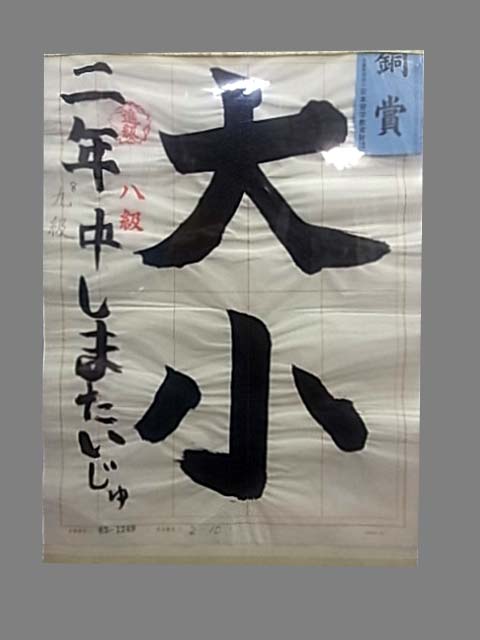 銅賞
大小
進級
八級
二年中しまたいじゅ
九級
2 10